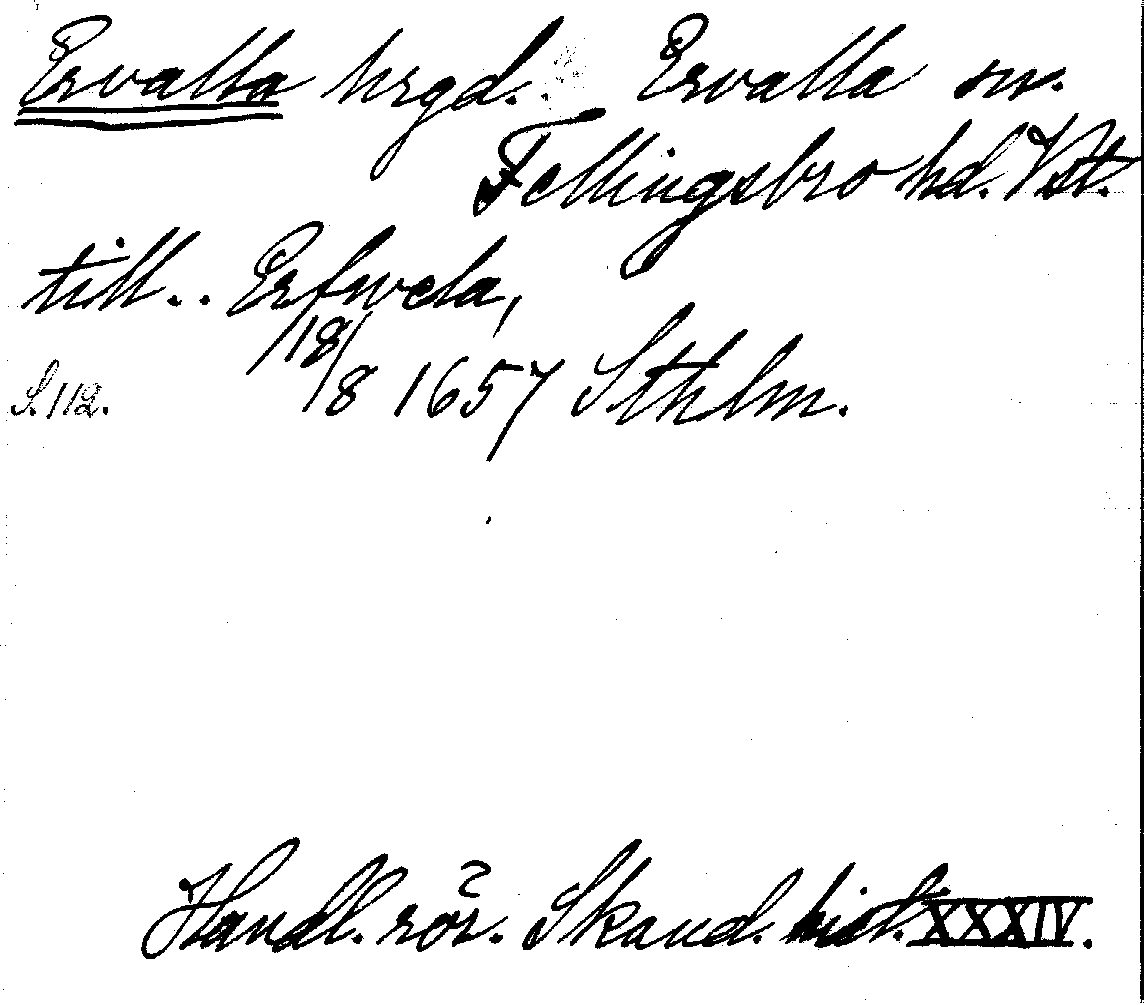 Ervalla hrgd. Ervalla sn.
Fellingsbro hd. Vstl.
till.. Erfwela,
18/8 1657 Sthlm.
S. 112.
Handl. rör. Skand. hist. XXXIV.